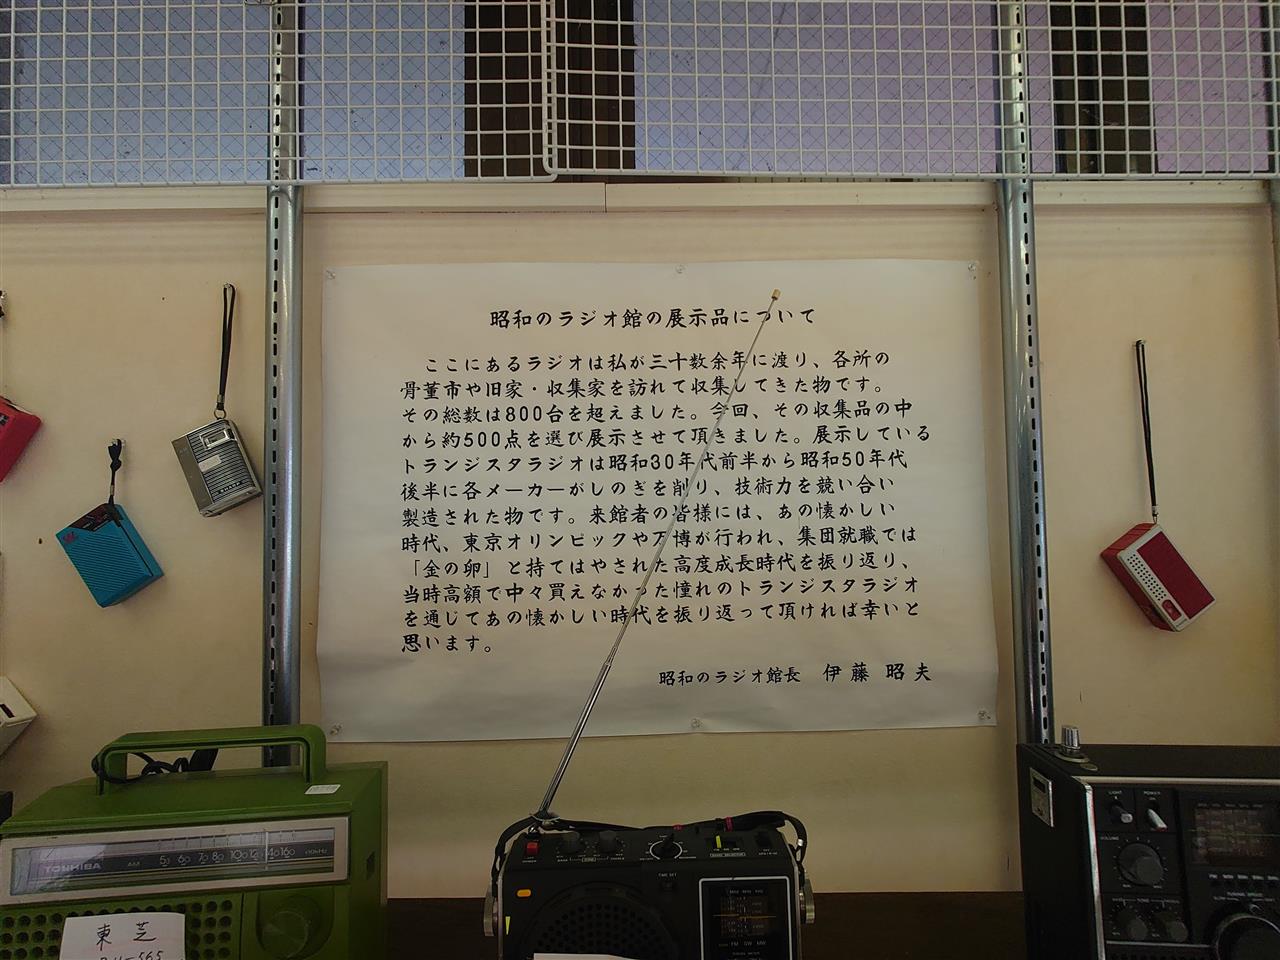 昭和のラジオ館の展示品について
ここにあるラジオは私が三十数余年に渡り、各所の
骨董市や旧家・収集家を訪れて収集してきた物です。
その総数は800台を超えました。今回、その収集品の中
から約500点を選び展示させて頂きました。展示している
トランジスタラジオは昭和30年代前半から昭和50年代
後半に各メーカーがしのぎを削り、技術力を競い合い
製造された物です。来館者の皆様には、あの懐かしい
時代、東京オリンピックや万博が行われ、集団就職では
「金の卵」と持てはやされた高度成長時代を振り返り、
当時高額で中々買えなかった憧れのトランジスタラジオ
を通じてあの懐かしい時代を振り返って頂ければ幸いと
思います。
昭和のラジオ館長 伊藤 昭夫
TOSHIBA
AM
東芝
LIGHT
POWER
VOLUME
TIME SET
FM
SW
MW